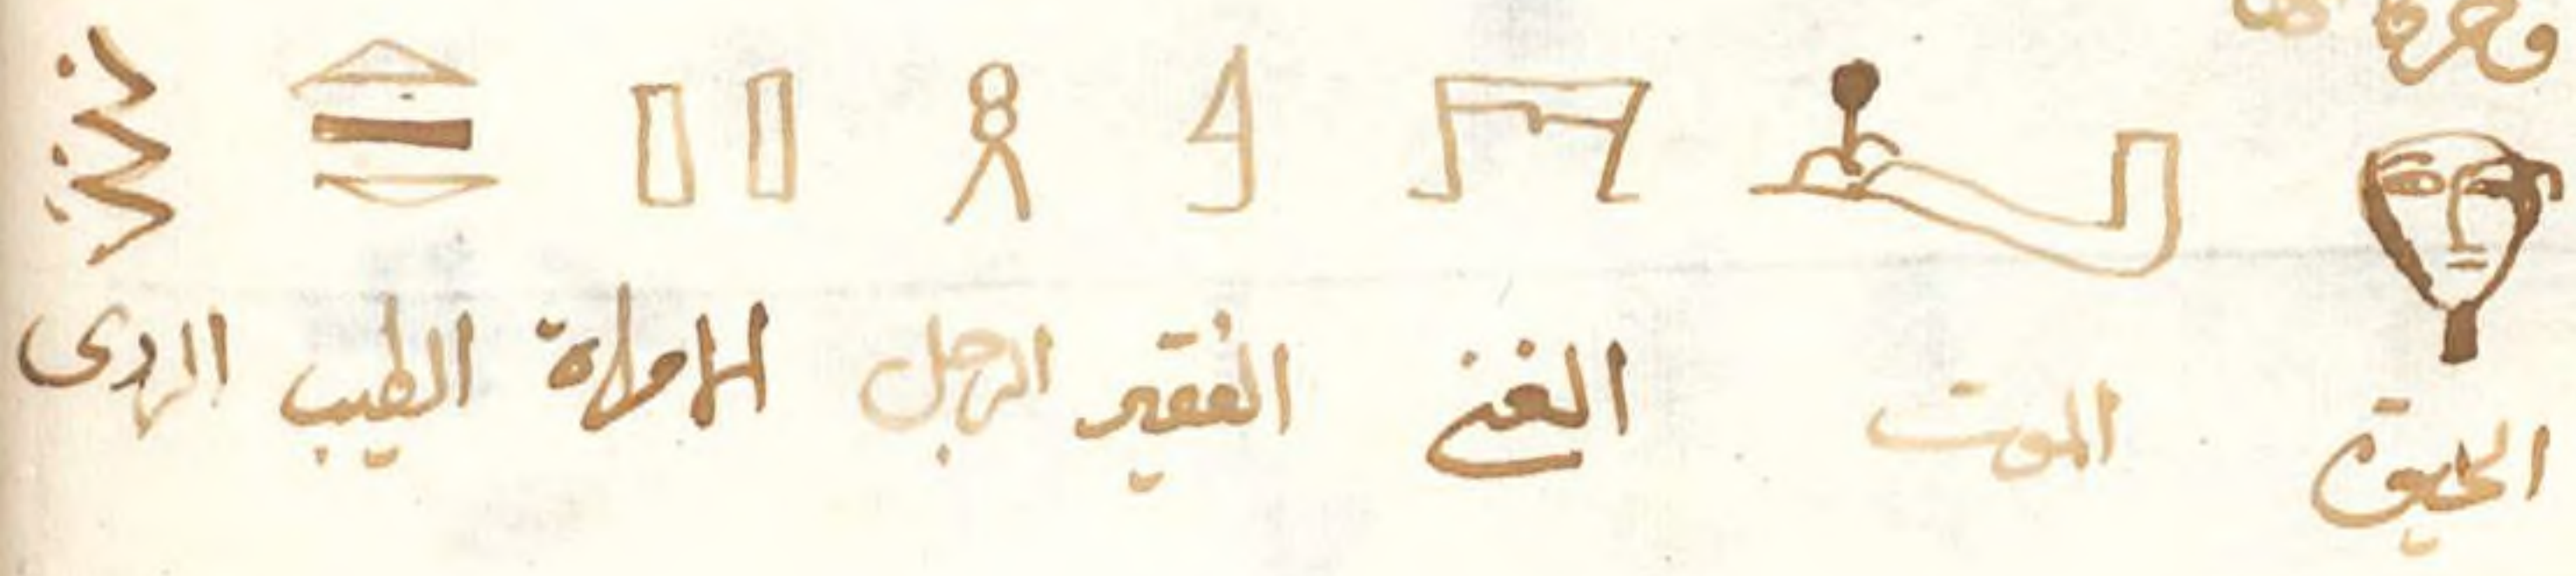 الحيوة الموت الغنى الفقير الرجل الامراة الطيب الردى